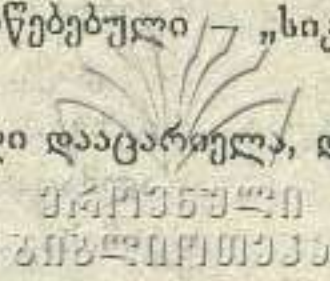 წებებული — „სიკ
ლი დააცარიელა, დ
ეროვნული
ბიბლიოთეკა